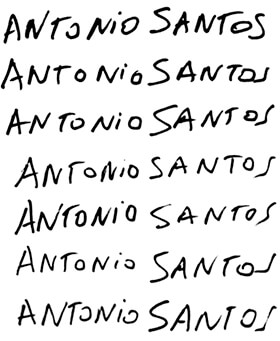 ANTONiO SANTOS
ANTONiO SANTOS
ANTONiO SANTOS
ANTONIO SANTOS
ANTONIO SANTOS
ANTONiO SANTOS
ANTONiO SANTOS